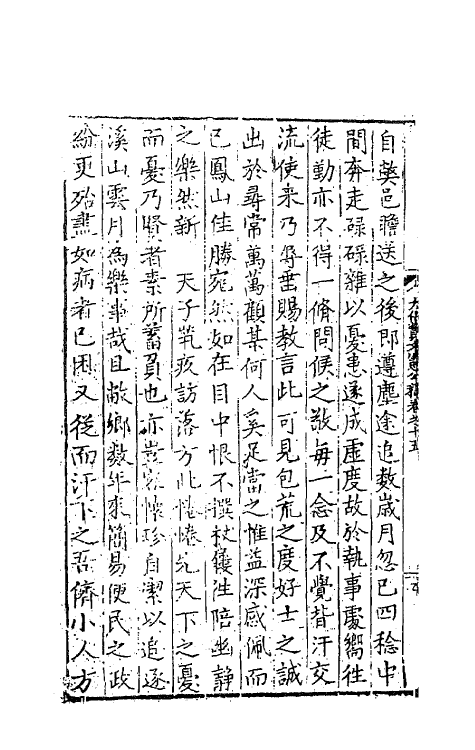 自奠邑瞻送之後即遵塵途追數歲月忽已四稔中
間奔走碌碌雜以憂患遂成虛度故於執事處嚮徃
徒勤亦不得一脩問候之敬每一念及不覺背汗交
流使来乃辱垂賜教言此可見包荒之度好士之誠
出於尋常萬萬顧某何人奚足當之惟益深感佩而
已鳳山佳勝宛然如在目中恨不撰杖屨徃陪幽静
之樂然新 天子茕疚訪落方此惓惓先天下之憂
而憂乃賢者素所蓄負也亦豈容懷珍自潔以追逐
溪山雲月為樂事哉且敝鄉數年來簡易便民之政
紛更殆盡如病者已困又從而汗下之吾儕小人方